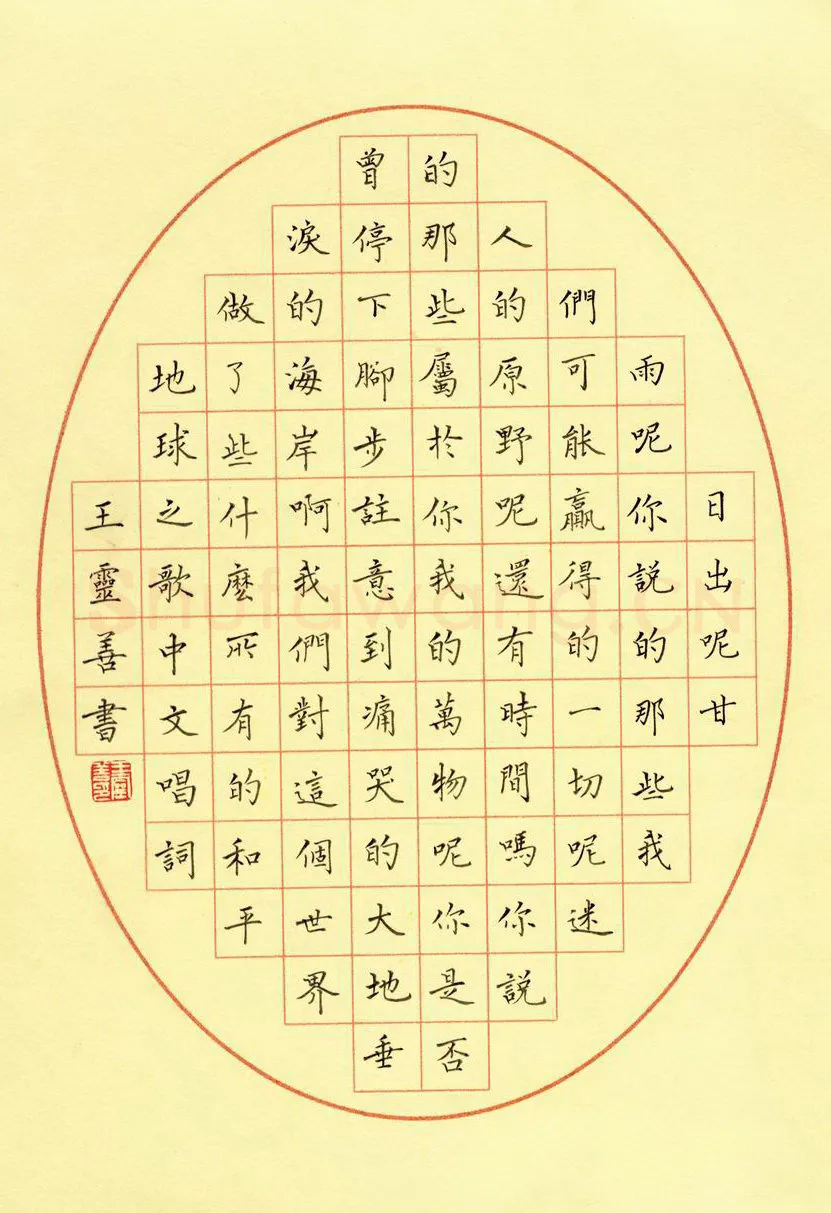 日出呢甘
雨呢你説的那些我
們可能贏得的一切呢迷
人的原野呢還有時間嗎你説
的那些屬於你我的萬物呢你是否
曾停下腳步註意到痛哭的大地垂
淚的海岸啊我們對這個世界
做了些什麽所有的和平
地球之歌中文唱詞
王靈善書
Shufawang.CN